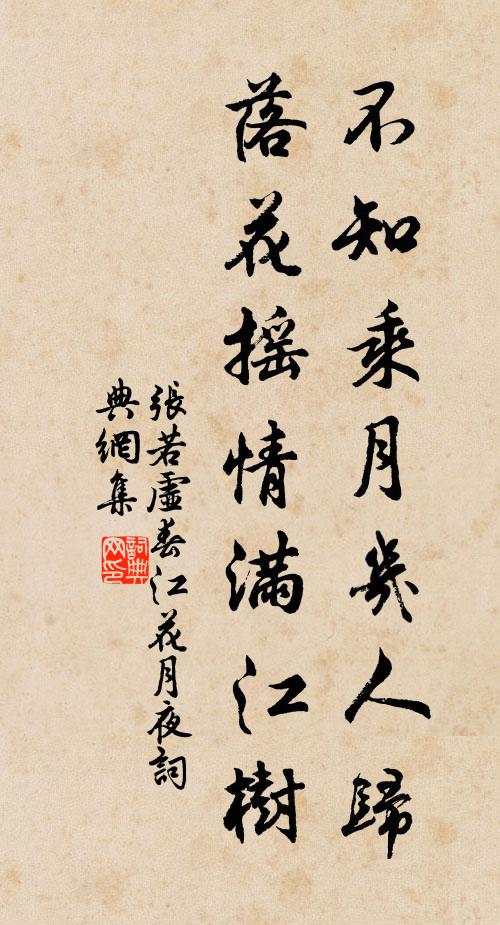 不知乘月幾人歸
落花摇情滿江樹
張若虛春江花月夜詞
典網集
詞典
网印